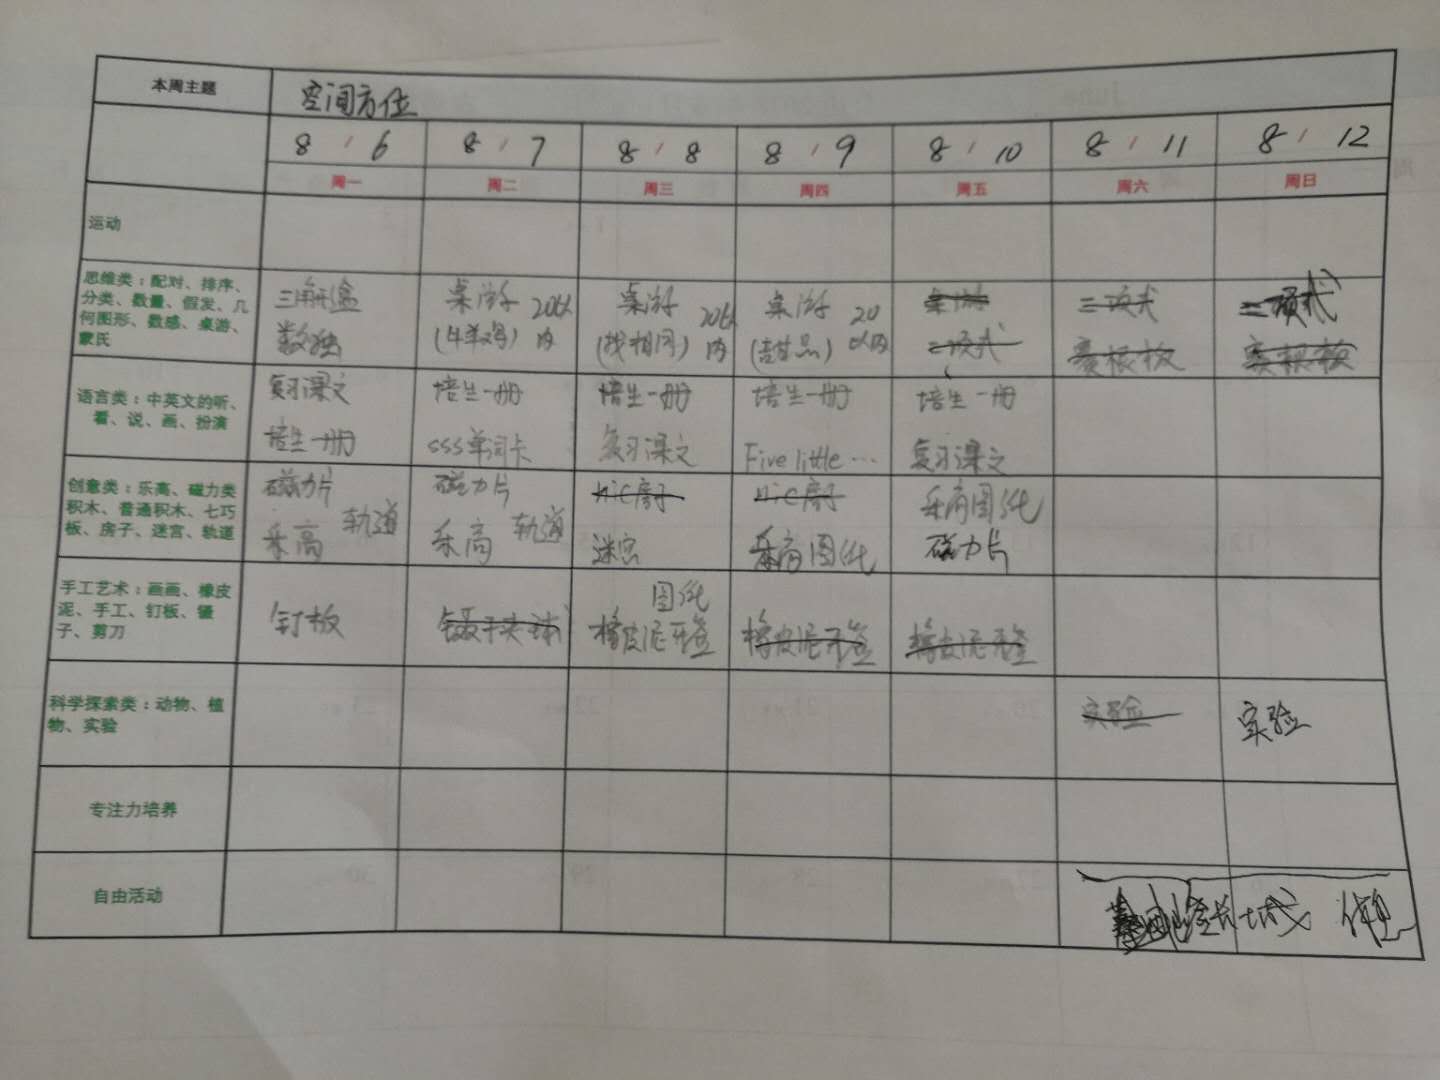 本周主题 空间方位
8 / 6 8 / 7 8 / 8 8 / 9 8 / 10 8 / 11 8 / 12
周一 周二 周三 周四 周五 周六 周日
运动
思维类：配对、排序、
分类、数量、假发、几
何图形、数感、桌游、
蒙氏
三角形盒
数独
桌游 20以
(牛羊鸡) 内
桌游 20以
(找相同) 内
桌游 20
(甜品) 以内
桌游
二项式
三项式
二项式
语言类：中英文的听、
看、说、画、扮演
复习课文
培生一册
培生一册
sss单词卡
培生一册
复习课文
培生一册
Five little ...
培生一册
复习课文
创意类：乐高、磁力类
积木、普通积木、七巧
板、房子、迷宫、轨道
磁力片
乐高 轨道
磁力片
乐高 轨道
迷宫
乐高图纸
乐高图纸
磁力片
手工艺术：画画、橡皮
泥、手工、钉板、镊
子、剪刀
钉板
镊子夹球
图纸
橡皮泥牙签
橡皮泥牙签
橡皮泥牙签
科学探索类：动物、植
物、实验
实验
实验
专注力培养
自由活动